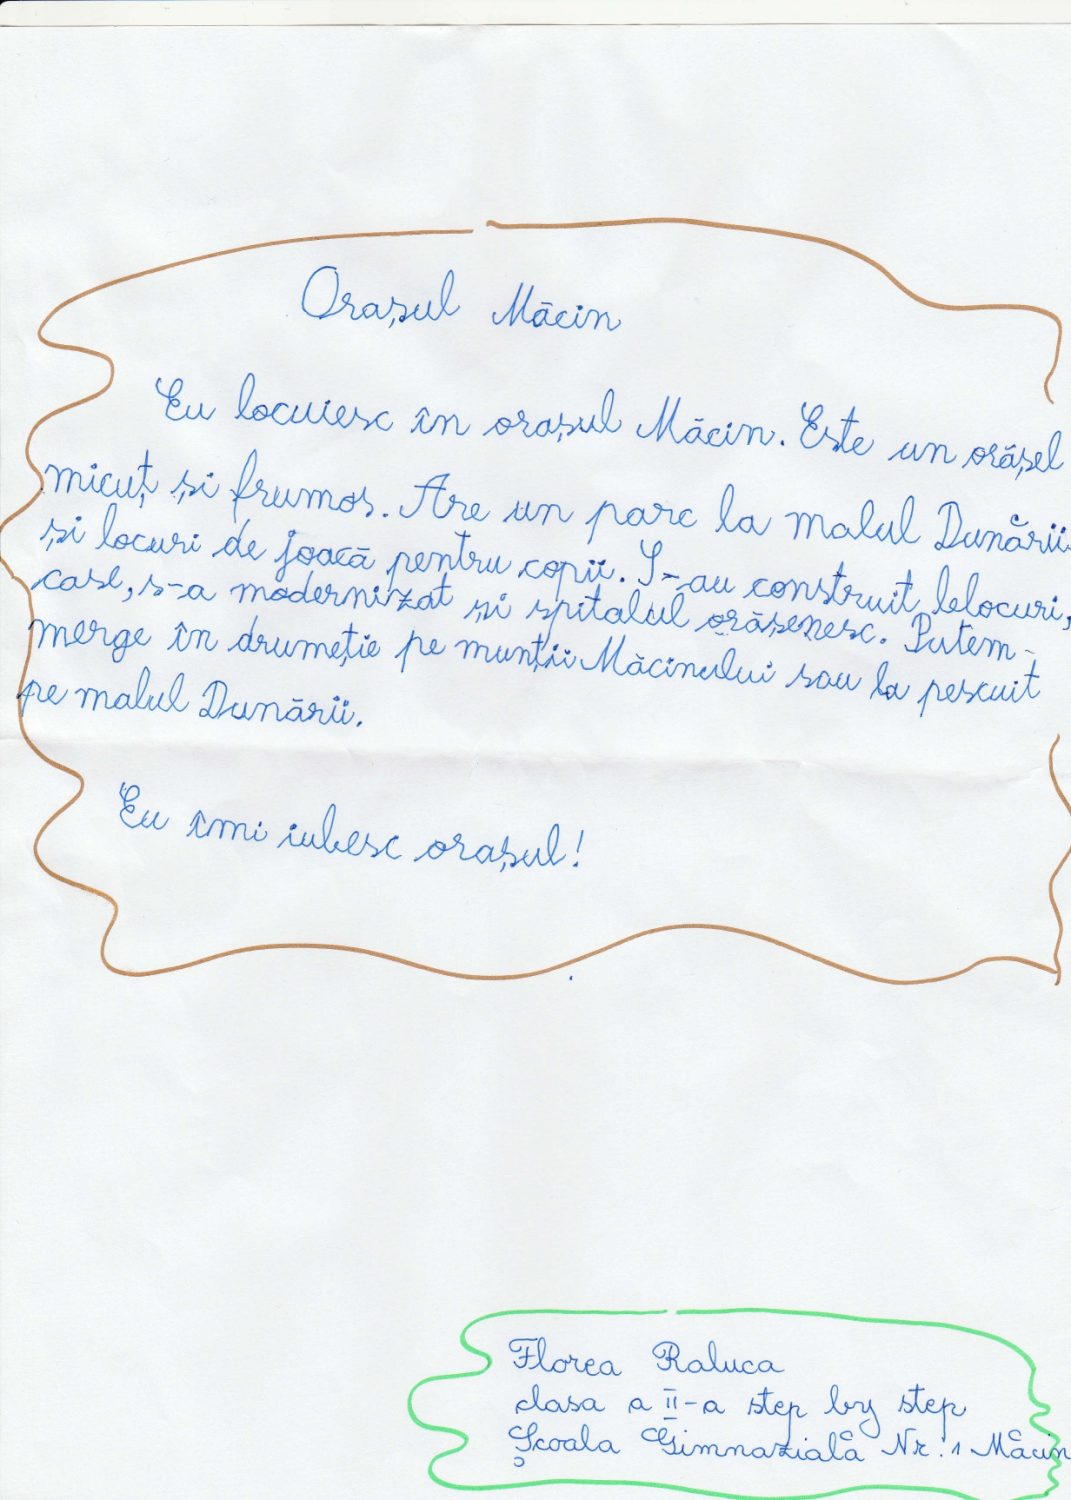 Orașul Măcin
Eu locuiesc în orașul Măcin. Este un orășel
micuț și frumos. Are un parc la malul Dunării
și locuri de joacă pentru copii. S-au construit blocuri,
case, s-a modernizat și spitalul orășenesc. Putem
merge în drumeție pe munții Măcinului sau la pescuit
pe malul Dunării.
Eu îmi iubesc orașul!
Florea Raluca
clasa a II-a step by step
Școala Gimnazială Nr. 1 Măcin